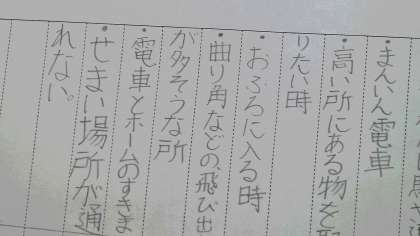 ・まんいん電車
・高い所にある物を取
りたい時
・おふろに入る時
・曲り角などの、飛び出
が多そうな所
・電車とホームのすきま
・せまい場所が通
れない。